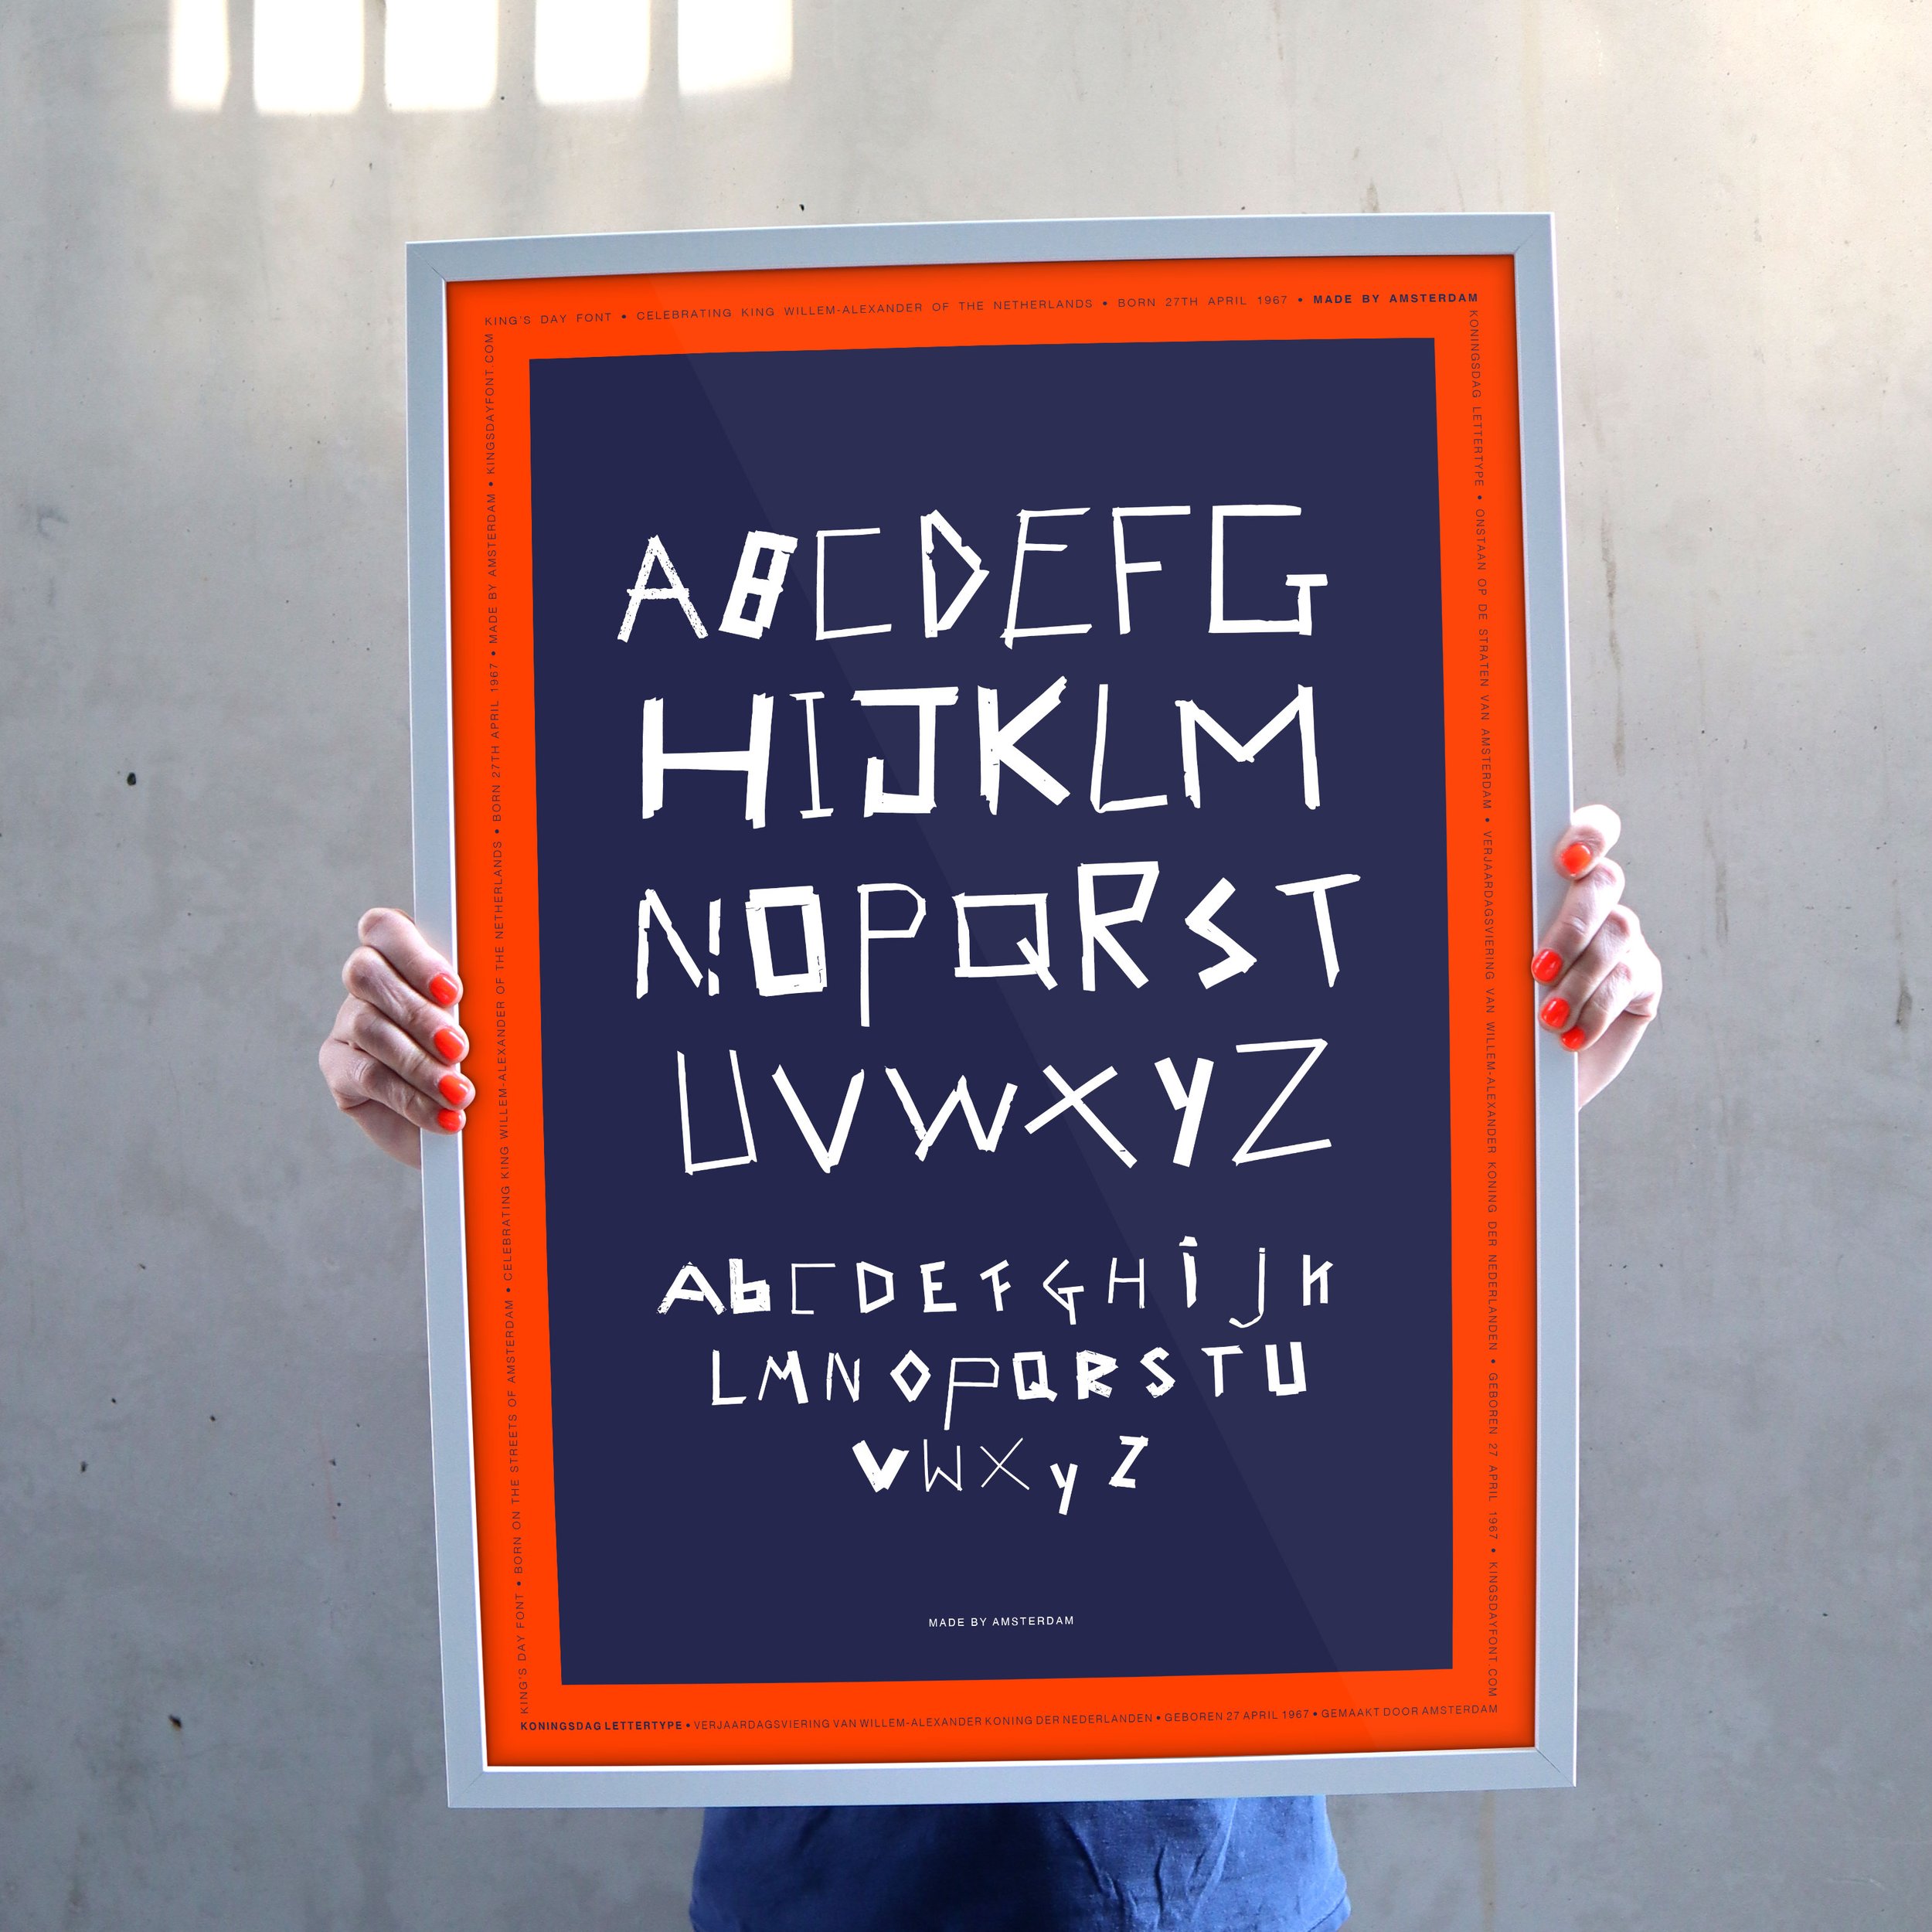 KING'S DAY FONT • CELEBRATING KING WILLEM-ALEXANDER OF THE NETHERLANDS • BORN 27TH APRIL 1967 • MADE BY AMSTERDAM
KING'S DAY FONT • BORN ON THE STREETS OF AMSTERDAM • CELEBRATING KING WILLEM-ALEXANDER OF THE NETHERLANDS • BORN 27TH APRIL 1967 • MADE BY AMSTERDAM • KINGSDAYFONT.COM
KONINGSDAG LETTERTYPE • ONSTAAN OP DE STRATEN VAN AMSTERDAM • VERJAARDAGSVIERING VAN WILLEM-ALEXANDER KONING DER NEDERLANDEN • GEBOREN 27 APRIL 1967 • KINGSDAYFONT.COM
ABCDEFG
HIJKLM
NOPQRST
UVWXYZ
AbCDEFGHijK
LMNOPQRSTU
VWXyZ
MADE BY AMSTERDAM
KONINGSDAG LETTERTYPE • VERJAARDAGSVIERING VAN WILLEM-ALEXANDER KONING DER NEDERLANDEN • GEBOREN 27 APRIL 1967 • GEMAAKT DOOR AMSTERDAM